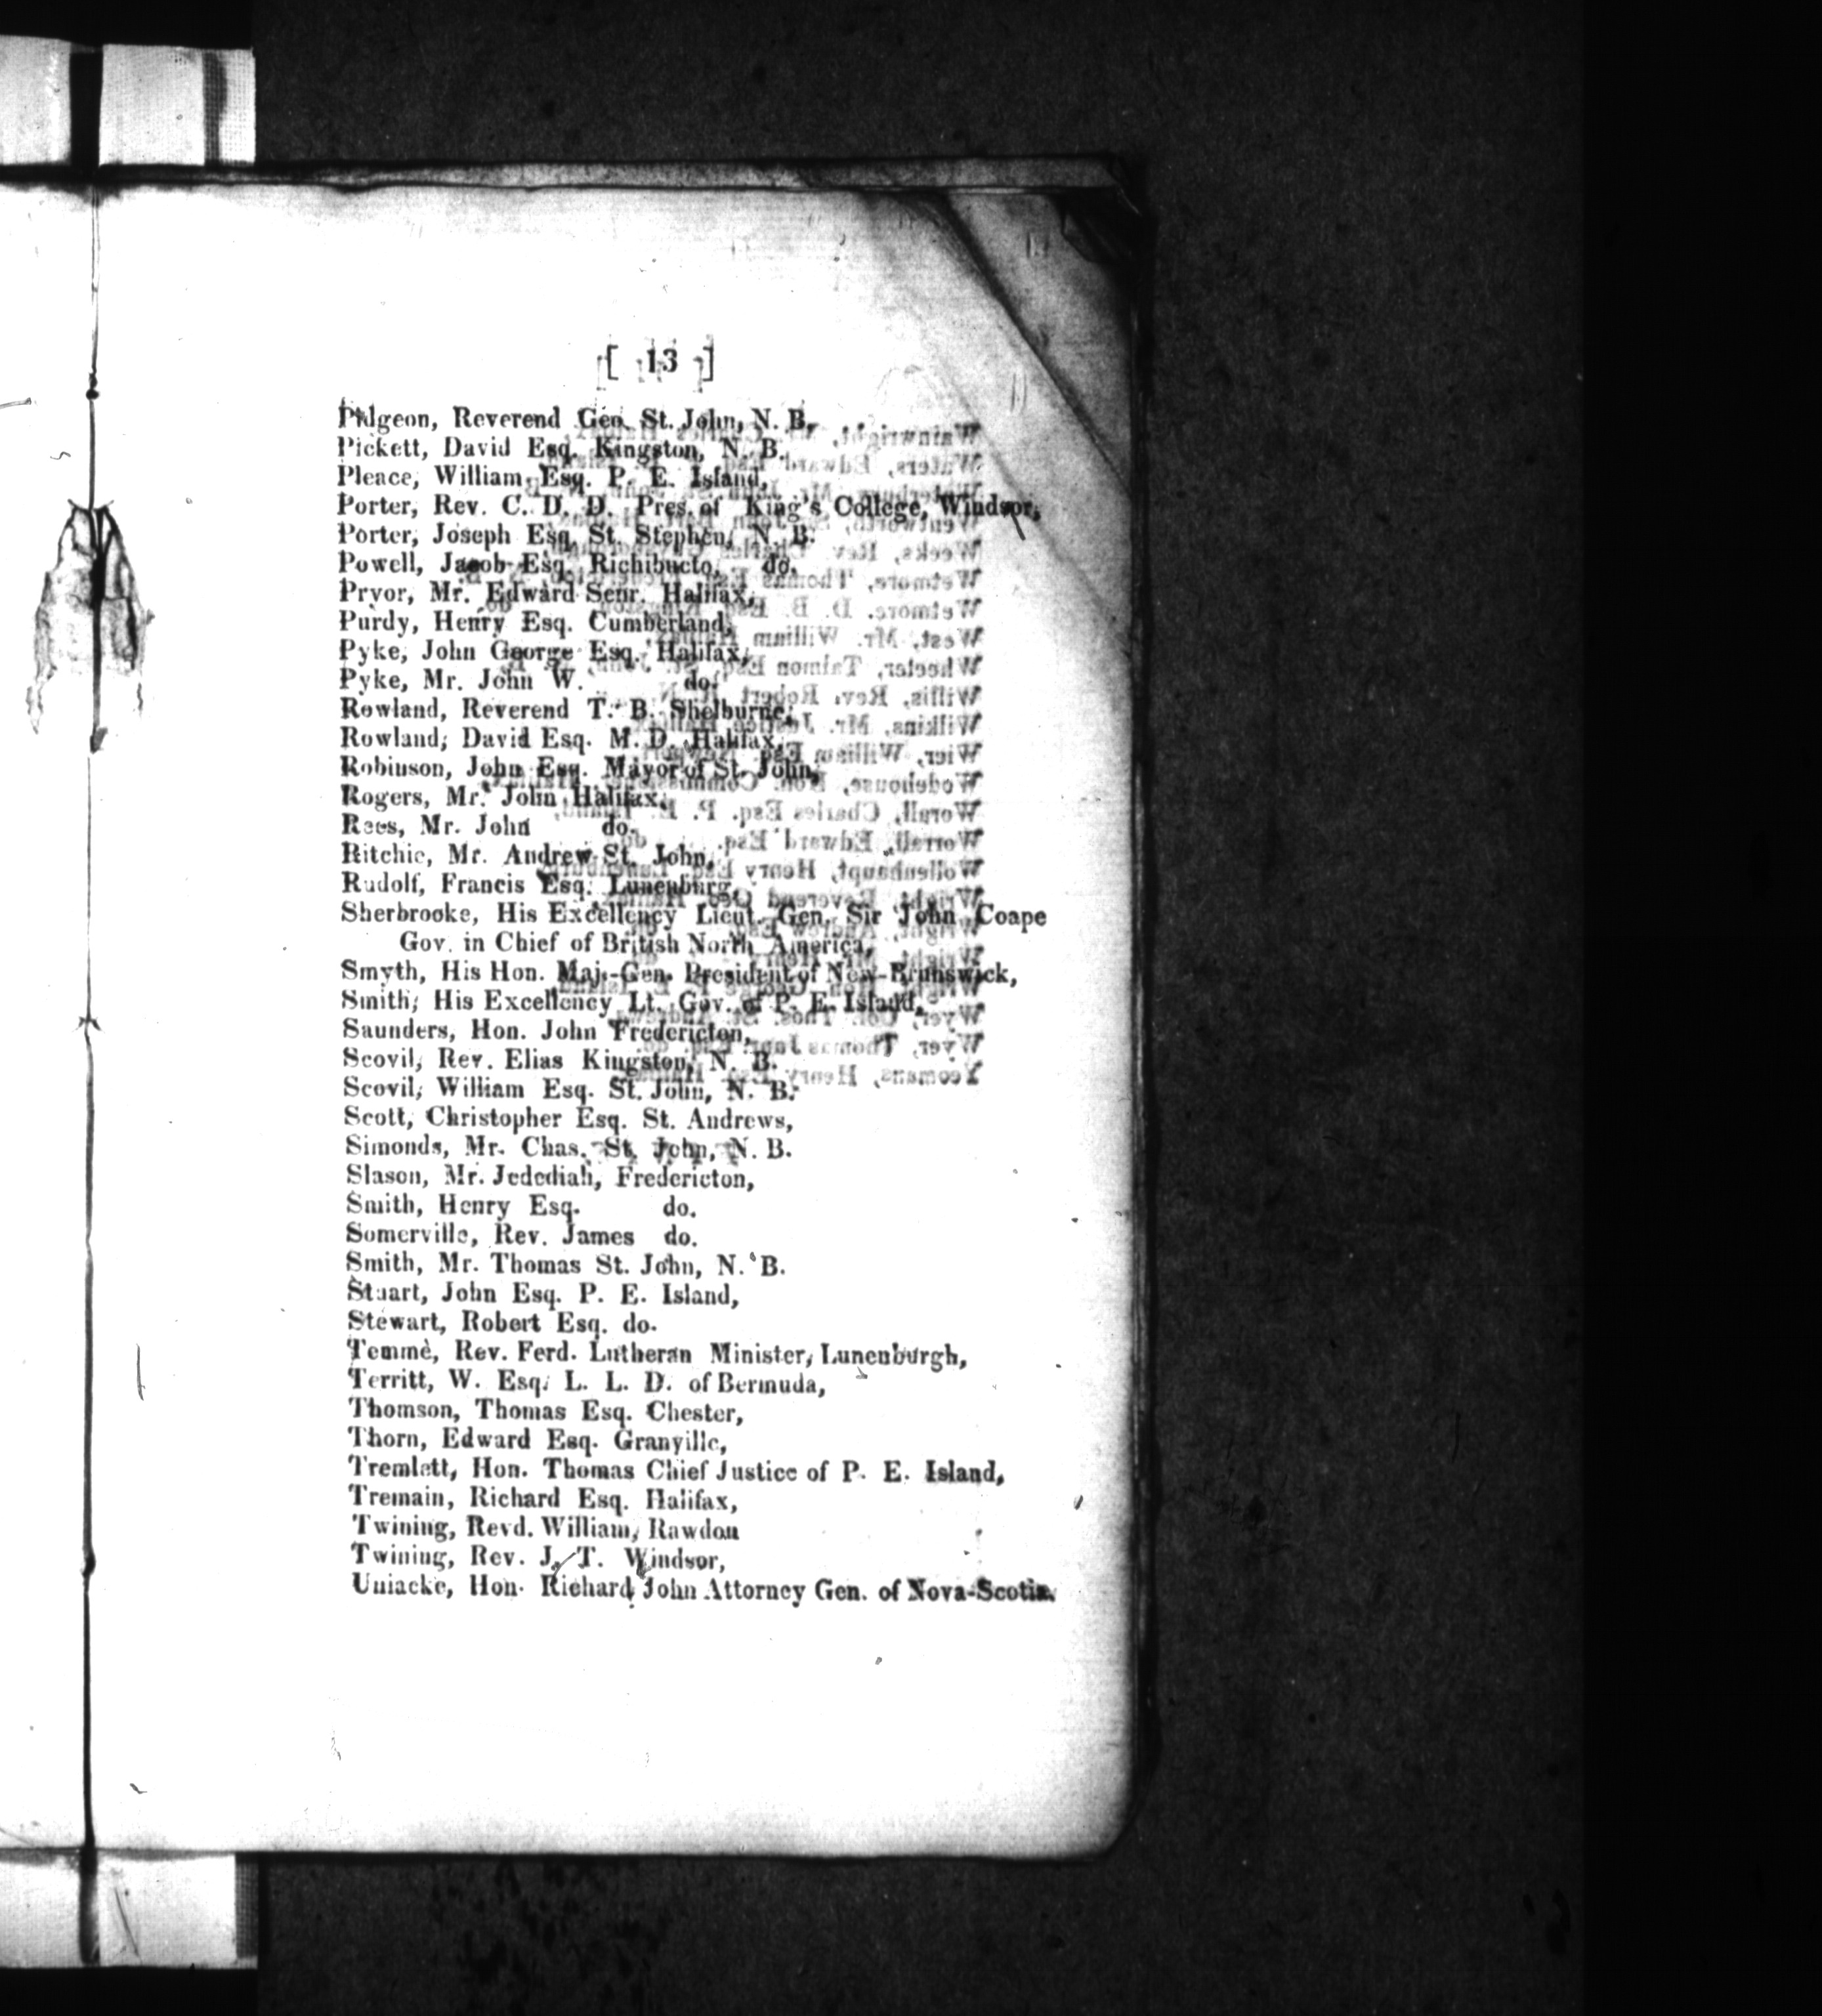 [ 13 ]
Pidgeon, Reverend Geo. St. John, N. B.
Pickett, David Esq. Kingston, N. B.
Pleace, William, Esq. P. E. Island,
Porter, Rev. C. D. D. Pres. of King's College, Windsor,
Porter, Joseph Esq. St. Stephen, N. B.
Powell, Jacob Esq. Richibucto, do.
Pryor, Mr. Edward Senr. Halifax,
Purdy, Henry Esq. Cumberland,
Pyke, John George Esq. Halifax,
Pyke, Mr. John W. do.
Rowland, Reverend T. B. Shelburne,
Rowland, David Esq. M. D. Halifax,
Robinson, John Esq. Mayor of St. John,
Rogers, Mr. John Halifax,
Rees, Mr. John do.
Ritchie, Mr. Andrew St. John,
Rudolf, Francis Esq. Lunenburg,
Sherbrooke, His Excellency Lieut. Gen. Sir John Coape
Gov. in Chief of British North America,
Smyth, His Hon. Maj.-Gen. President of New-Brunswick,
Smith, His Excellency Lt. Gov. of P. E. Island,
Saunders, Hon. John Fredericton,
Scovil, Rev. Elias Kingston, N. B.
Scovil, William Esq. St. John, N. B.
Scott, Christopher Esq. St. Andrews,
Simonds, Mr. Chas. St. John, N. B.
Slason, Mr. Jedediah, Fredericton,
Smith, Henry Esq. do.
Somerville, Rev. James do.
Smith, Mr. Thomas St. John, N. B.
Stuart, John Esq. P. E. Island,
Stewart, Robert Esq. do.
Temme, Rev. Ferd. Lutheran Minister, Lunenburgh,
Territt, W. Esq. L. L. D. of Bermuda,
Thomson, Thomas Esq. Chester,
Thorn, Edward Esq. Granville,
Tremlett, Hon. Thomas Chief Justice of P. E. Island,
Tremain, Richard Esq. Halifax,
Twining, Revd. William, Rawdon
Twining, Rev. J. T. Windsor,
Uniacke, Hon. Richard John Attorney Gen. of Nova-Scotia.